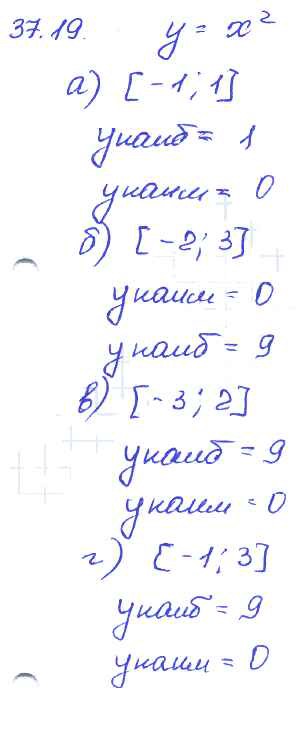 37.19. y = x²
а) [-1; 1]
yнаиб = 1
yнаим = 0
б) [-2; 3]
yнаим = 0
yнаиб = 9
в) [-3; 2]
yнаиб = 9
yнаим = 0
г) [-1; 3]
yнаиб = 9
yнаим = 0